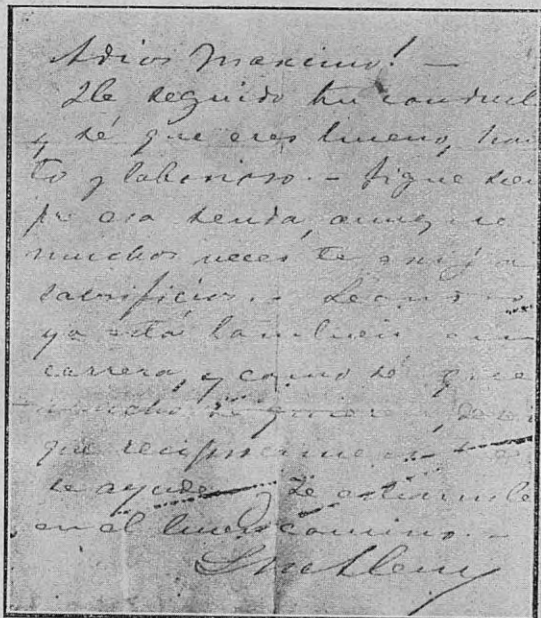 Adios Maximo! —
He seguido tu conduct
y sé que eres bueno, hon
to y laborioso. — Sigue siem
pr esa senda, aunq
muchas veces te exija
sacrificios. —
ya está tambien en
carrera, y como sé que
mucho se quieren,
que reciprocamente
se ayuden
en el buen camino. —
L. N. Alem